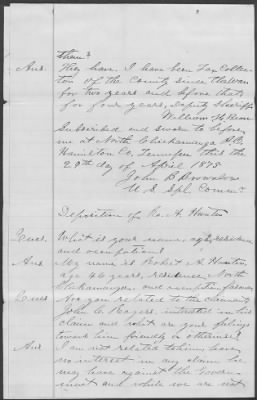 them?
Ans. They have. I have been Tax Collec-
tor of the County since the War
for two years and before that
for four years, Deputy Sheriff.
William H. 
Subscribed and sworn to before
me at North Chickamauga P.O.
Hamilton Co. Tennessee this the
29th day of April 1875
John B Brownlow
U. S. Spl. Commr.
Deposition of Ro. A. Hunter
Ques. What is your name, age, residence
and occupation?
Ans My name is Robert A. Hunter,
age 46 years, residence North
Chickamauga and occupation farmer
Ques Are you related to the claimant
John C. Rogers, interested in his
claim and what are your feelings
toward him friendly or otherwise?
Ans I am not related to him, have
no interest in any claim he
may have against the Govern-
ment and while we are not